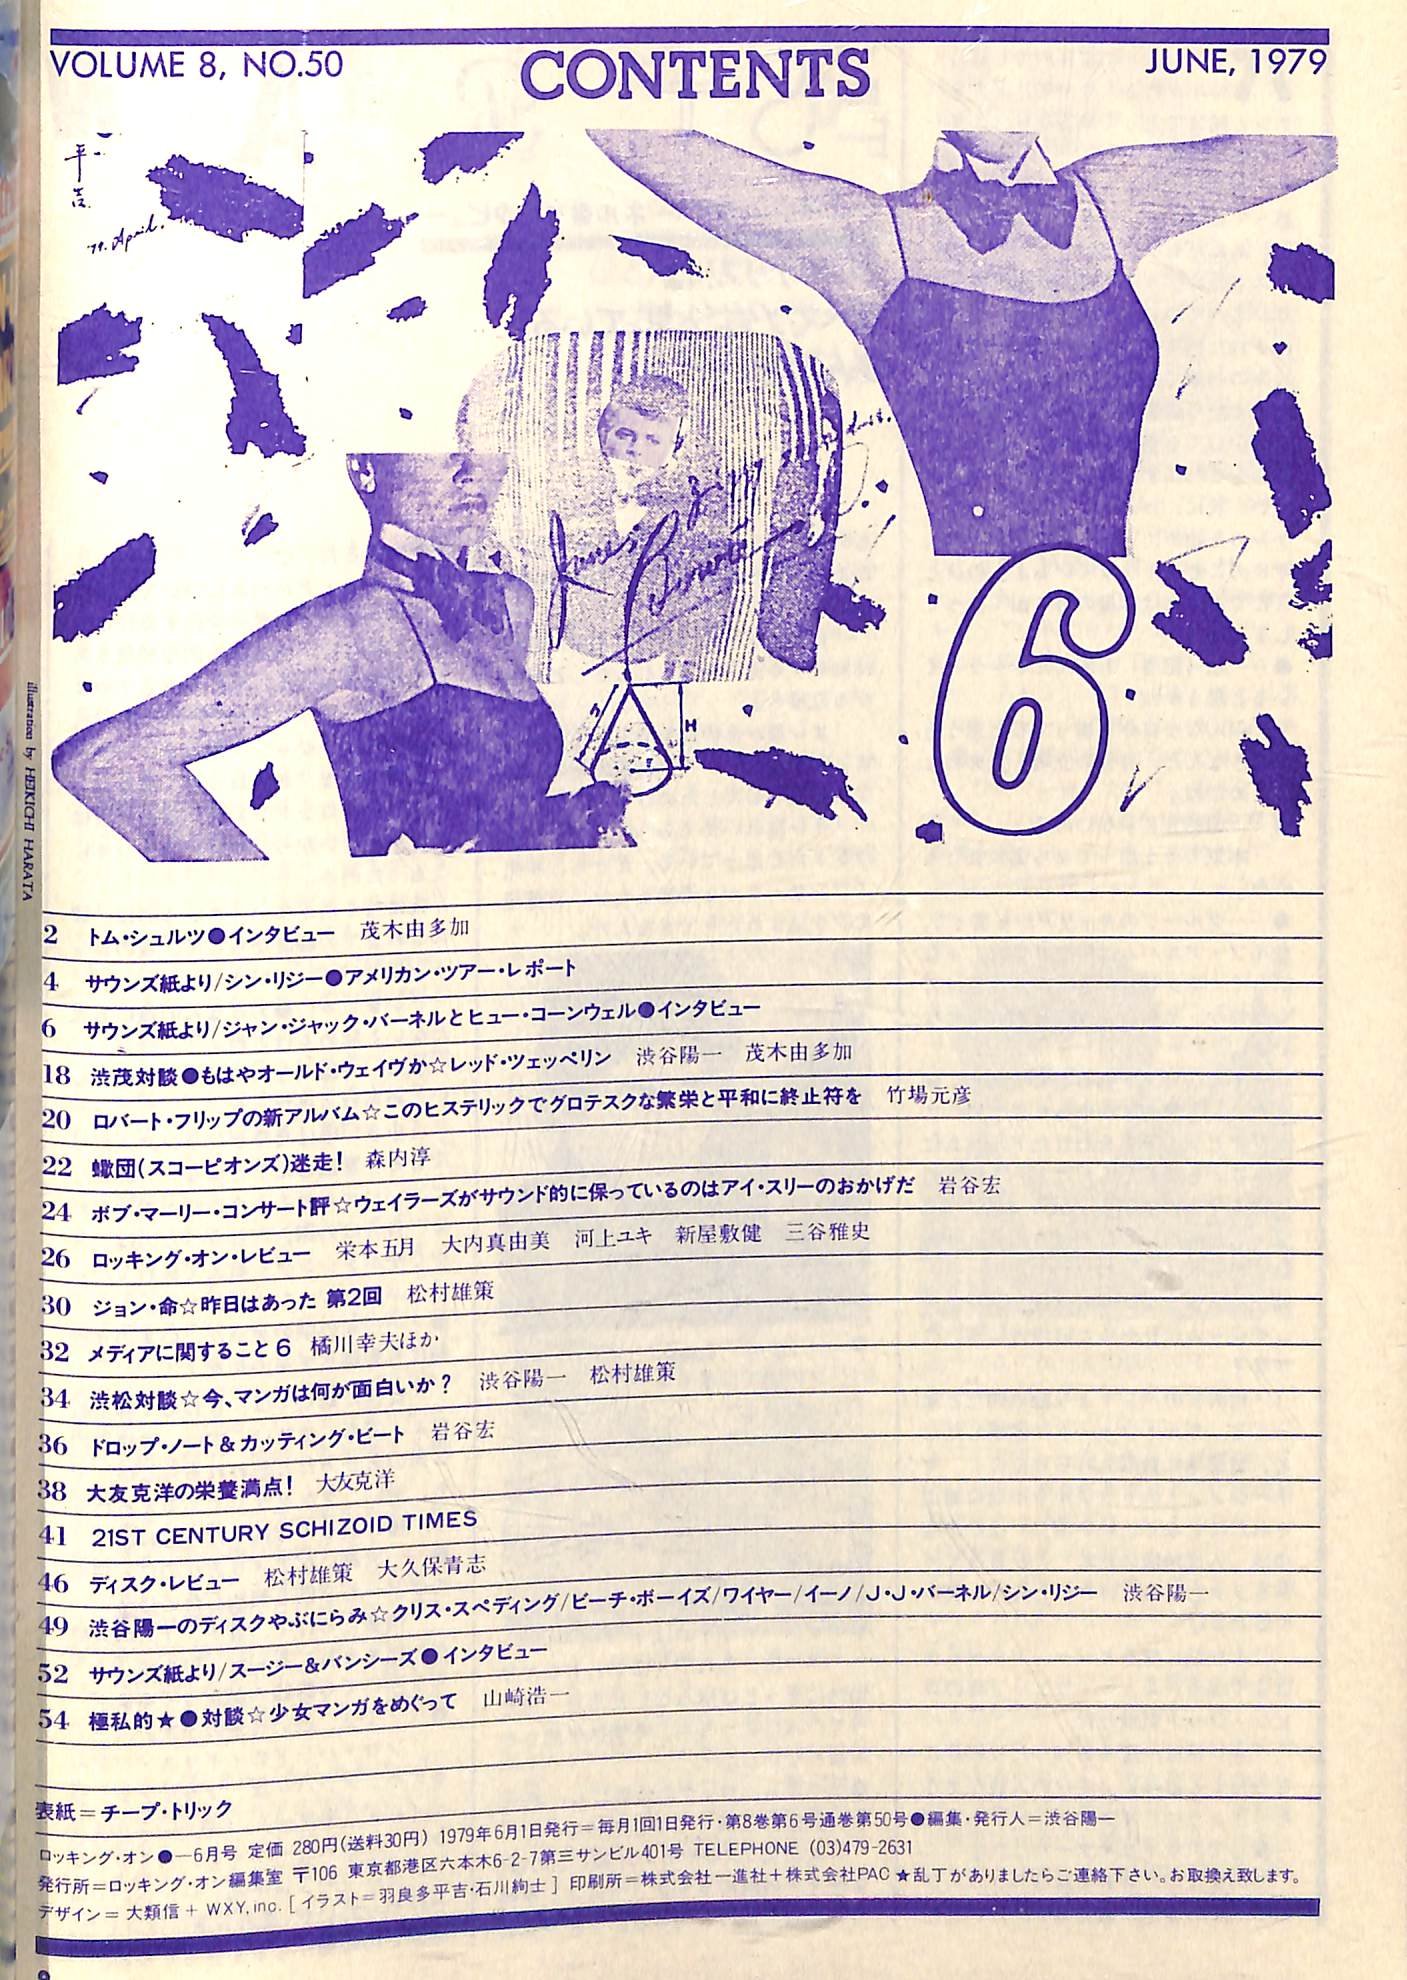 VOLUME 8, NO.50
CONTENTS
JUNE, 1979
平吉
'79. April.
H
r
6
illustration by HEIKICHI HARATA
2 トム・シュルツ●インタビュー 茂木由多加
4 サウンズ紙より/シン・リジー●アメリカン・ツアー・レポート
6 サウンズ紙より/ジャン・ジャック・バーネルとヒュー・コーンウェル●インタビュー
18 渋茂対談●もはやオールド・ウェイヴか☆レッド・ツェッペリン 渋谷陽一 茂木由多加
20 ロバート・フリップの新アルバム☆このヒステリックでグロテスクな繁栄と平和に終止符を 竹場元彦
22 蠍団(スコーピオンズ)迷走! 森内淳
24 ボブ・マーリー・コンサート評☆ウェイラーズがサウンド的に保っているのはアイ・スリーのおかげだ 岩谷宏
26 ロッキング・オン・レビュー 栄本五月 大内真由美 河上ユキ 新屋敷健 三谷雅史
30 ジョン・命☆昨日はあった 第2回 松村雄策
32 メディアに関すること6 橘川幸夫ほか
34 渋松対談☆今、マンガは何が面白いか? 渋谷陽一 松村雄策
36 ドロップ・ノート&カッティング・ビート 岩谷宏
38 大友克洋の栄養満点! 大友克洋
41 21ST CENTURY SCHIZOID TIMES
46 ディスク・レビュー 松村雄策 大久保青志
49 渋谷陽一のディスクやぶにらみ☆クリス・スペディング/ビーチ・ボーイズ/ワイヤー/イーノ/J・J・バーネル/シン・リジー 渋谷陽一
52 サウンズ紙より/スージー&バンシーズ●インタビュー
54 極私的★●対談☆少女マンガをめぐって 山崎浩一
表紙=チープ・トリック
ロッキング・オン●—6月号 定価 280円(送料30円) 1979年6月1日発行=毎月1回1日発行・第8巻第6号通巻第50号●編集・発行人=渋谷陽一
発行所=ロッキング・オン編集室 〒106 東京都港区六本木6-2-7第三サンビル401号 TELEPHONE (03)479-2631
デザイン=大類信+WXY,inc.[イラスト=羽良多平吉・石川絢士] 印刷所=株式会社一進社+株式会社PAC★乱丁がありましたらご連絡下さい。お取換え致します。